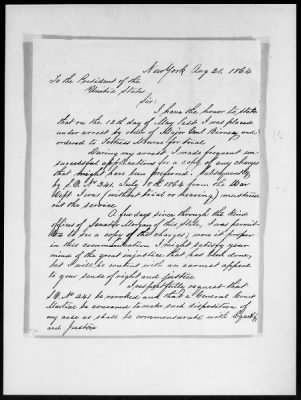 New York Aug 21, 1864
To the President of the
United States
Sir:
I have the honor to state
that on the 12th day of May last I was placed
under arrest by order of Major Genl Birney and
ordered to Fortress Monroe for trial
During my arrest I made frequent un-
successful applications for a copy of any charges
that might have been preferred. Subsequently
by S.O. No 241 July 15th 1864 from the War
Dept I was (without trial or hearing) mustered
out the service
A few days since through the kind
offices of Senator Morgan of this State, I was permit-
ted to see a copy of the charges; were it proper
in this communication I might satisfy your
mind of the great injustice that has been done,
but I will be content with an earnest appeal
to your sense of right and justice
I respectfully request that
S.O. No 241 be revoked and that a General Court
Martial be convened to make such disposition of
my case as shall be commensurate with Equity
and Justice